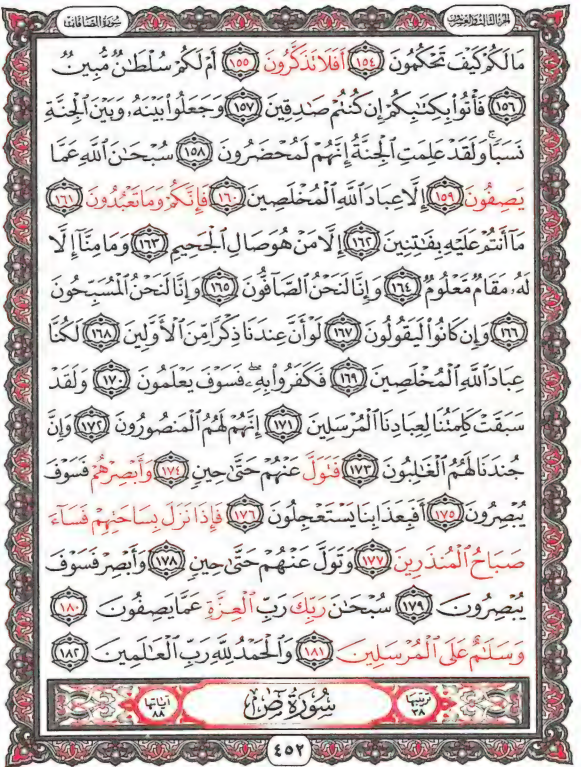 سُورَةُ الصَّافَّات الجُزْءُ الثَّالِثُ وَالعِشْرُونَ
مَا لَكُمْ كَيْفَ تَحْكُمُونَ ١٥٤ أَفَلَا تَذَكَّرُونَ ١٥٥ أَمْ لَكُمْ سُلْطَٰنٌ مُّبِينٌ
١٥٦ فَأْتُوا۟ بِكِتَٰبِكُمْ إِن كُنتُمْ صَٰدِقِينَ ١٥٧ وَجَعَلُوا۟ بَيْنَهُۥ وَبَيْنَ ٱلْجِنَّةِ
نَسَبًا ۚ وَلَقَدْ عَلِمَتِ ٱلْجِنَّةُ إِنَّهُمْ لَمُحْضَرُونَ ١٥٨ سُبْحَٰنَ ٱللَّهِ عَمَّا
يَصِفُونَ ١٥٩ إِلَّا عِبَادَ ٱللَّهِ ٱلْمُخْلَصِينَ ١٦٠ فَإِنَّكُمْ وَمَا تَعْبُدُونَ ١٦١
مَآ أَنتُمْ عَلَيْهِ بِفَٰتِنِينَ ١٦٢ إِلَّا مَنْ هُوَ صَالِ ٱلْجَحِيمِ ١٦٣ وَمَا مِنَّآ إِلَّا
لَهُۥ مَقَامٌ مَّعْلُومٌ ١٦٤ وَإِنَّا لَنَحْنُ ٱلصَّآفُّونَ ١٦٥ وَإِنَّا لَنَحْنُ ٱلْمُسَبِّحُونَ
١٦٦ وَإِن كَانُوا۟ لَيَقُولُونَ ١٦٧ لَوْ أَنَّ عِندَنَا ذِكْرًا مِّنَ ٱلْأَوَّلِينَ ١٦٨ لَكُنَّا
عِبَادَ ٱللَّهِ ٱلْمُخْلَصِينَ ١٦٩ فَكَفَرُوا۟ بِهِۦ ۖ فَسَوْفَ يَعْلَمُونَ ١٧٠ وَلَقَدْ
سَبَقَتْ كَلِمَتُنَا لِعِبَادِنَا ٱلْمُرْسَلِينَ ١٧١ إِنَّهُمْ لَهُمُ ٱلْمَنصُورُونَ ١٧٢ وَإِنَّ
جُندَنَا لَهُمُ ٱلْغَٰلِبُونَ ١٧٣ فَتَوَلَّ عَنْهُمْ حَتَّىٰ حِينٍ ١٧٤ وَأَبْصِرْهُمْ فَسَوْفَ
يُبْصِرُونَ ١٧٥ أَفَبِعَذَابِنَا يَسْتَعْجِلُونَ ١٧٦ فَإِذَا نَزَلَ بِسَاحَتِهِمْ فَسَآءَ
صَبَاحُ ٱلْمُنذَرِينَ ١٧٧ وَتَوَلَّ عَنْهُمْ حَتَّىٰ حِينٍ ١٧٨ وَأَبْصِرْ فَسَوْفَ
يُبْصِرُونَ ١٧٩ سُبْحَٰنَ رَبِّكَ رَبِّ ٱلْعِزَّةِ عَمَّا يَصِفُونَ ١٨٠
وَسَلَٰمٌ عَلَى ٱلْمُرْسَلِينَ ١٨١ وَٱلْحَمْدُ لِلَّهِ رَبِّ ٱلْعَٰلَمِينَ ١٨٢
ترتيبها ٣٨ سُورَةُ صٓ آياتها ٨٨
٤٥٢